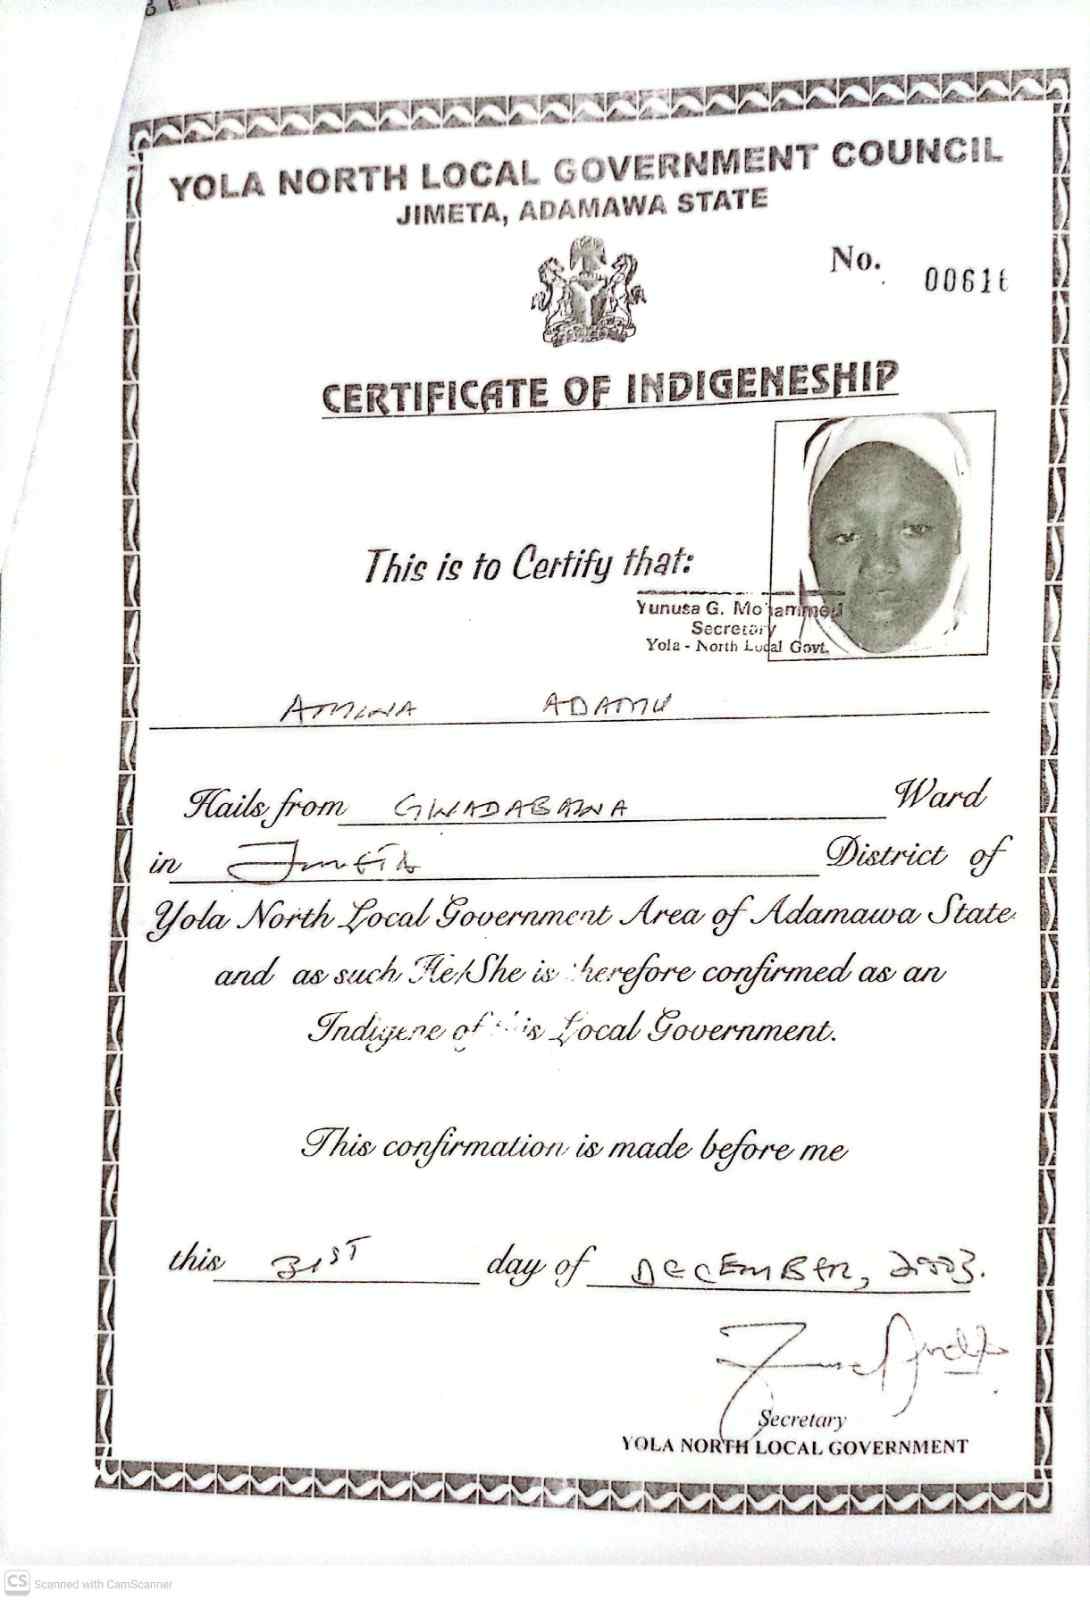 YOLA NORTH LOCAL GOVERNMENT COUNCIL
JIMETA, ADAMAWA STATE
No. 00616
CERTIFICATE OF INDIGENESHIP
This is to Certify that:
Yunusa G. Mohammed
Secretary
Yola - North Local Govt.
AMINA ADAMU
Hails from GWADABAWA Ward
in Jimeta District of
Yola North Local Government Area of Adamawa State
and as such He/She is therefore confirmed as an
Indigene of this Local Government.
This confirmation is made before me
this 31ST day of DECEMBER, 2003.
Secretary
YOLA NORTH LOCAL GOVERNMENT
CS Scanned with CamScanner